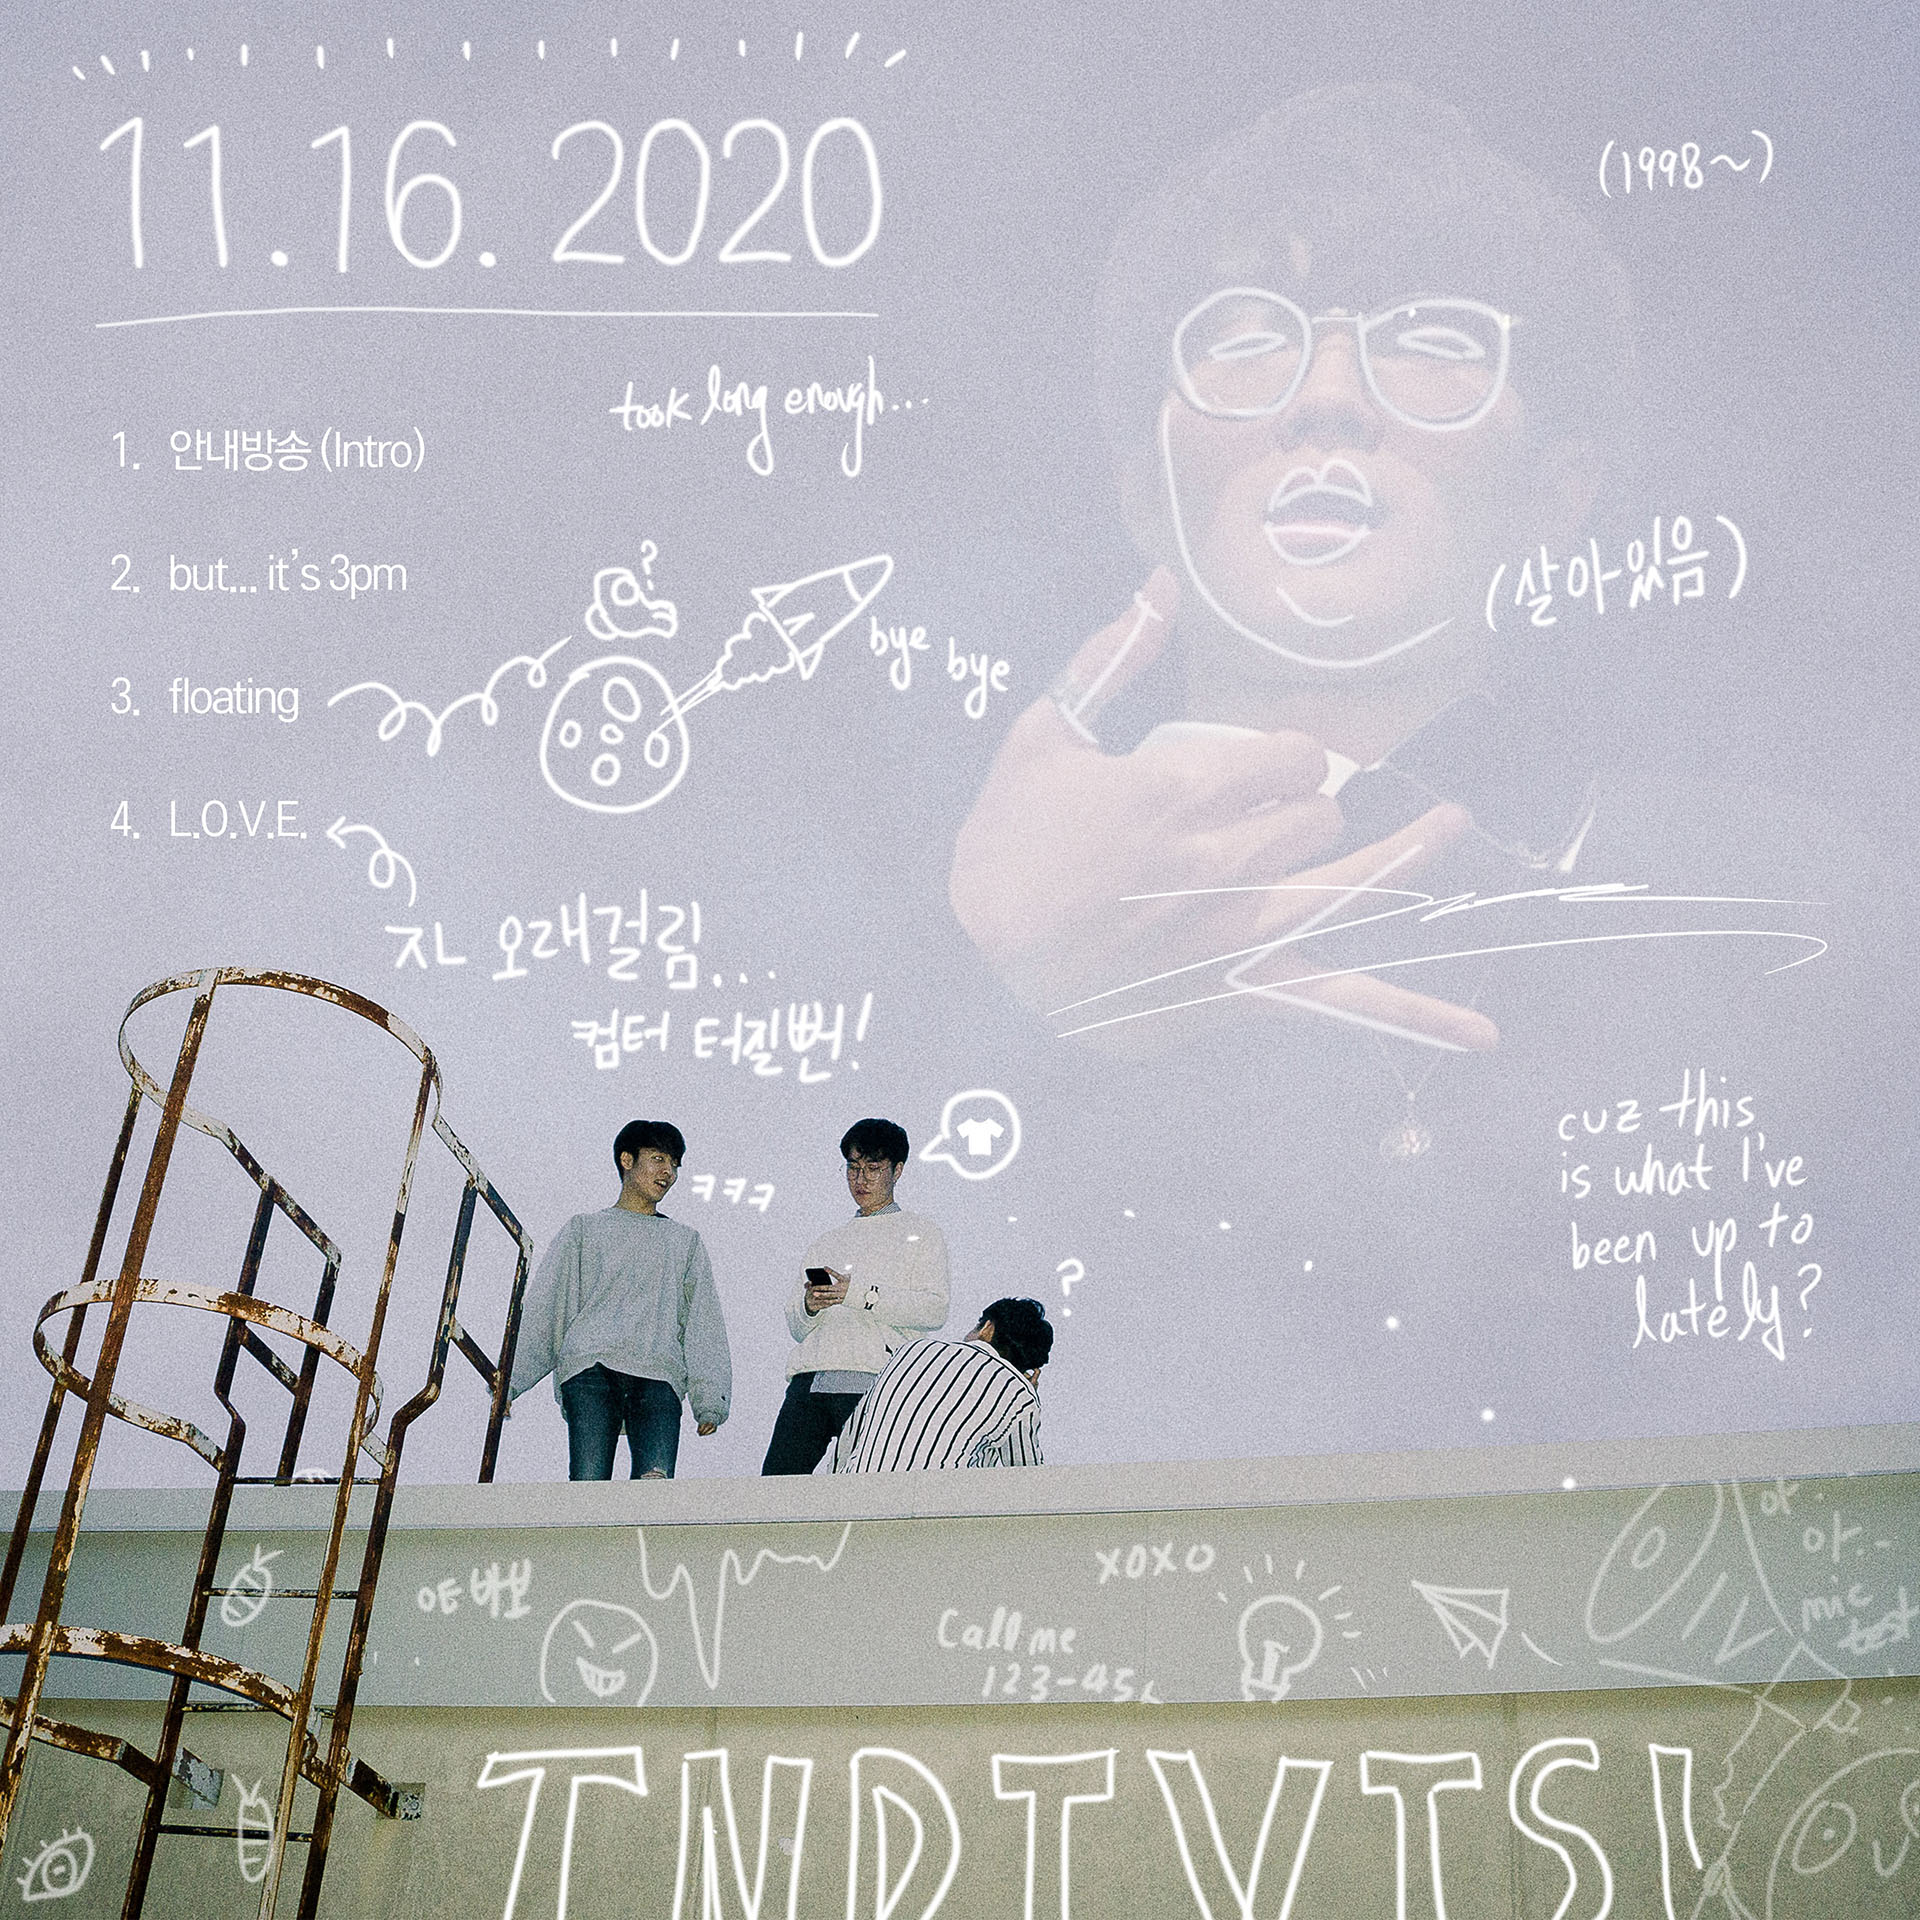 11.16.2020
(1998~)
took long enough...
1. 안내방송 (Intro)
2. but... it's 3pm
?
bye bye
3. floating
4. L.O.V.E.
(살아있음)
자ㄴ 오래걸림...
컴터 터질뻔!
cuz this
is what I've
been up to
lately?
ㅋㅋㅋ
?
xoxo
Call me
123-45
아.. 
mic
test